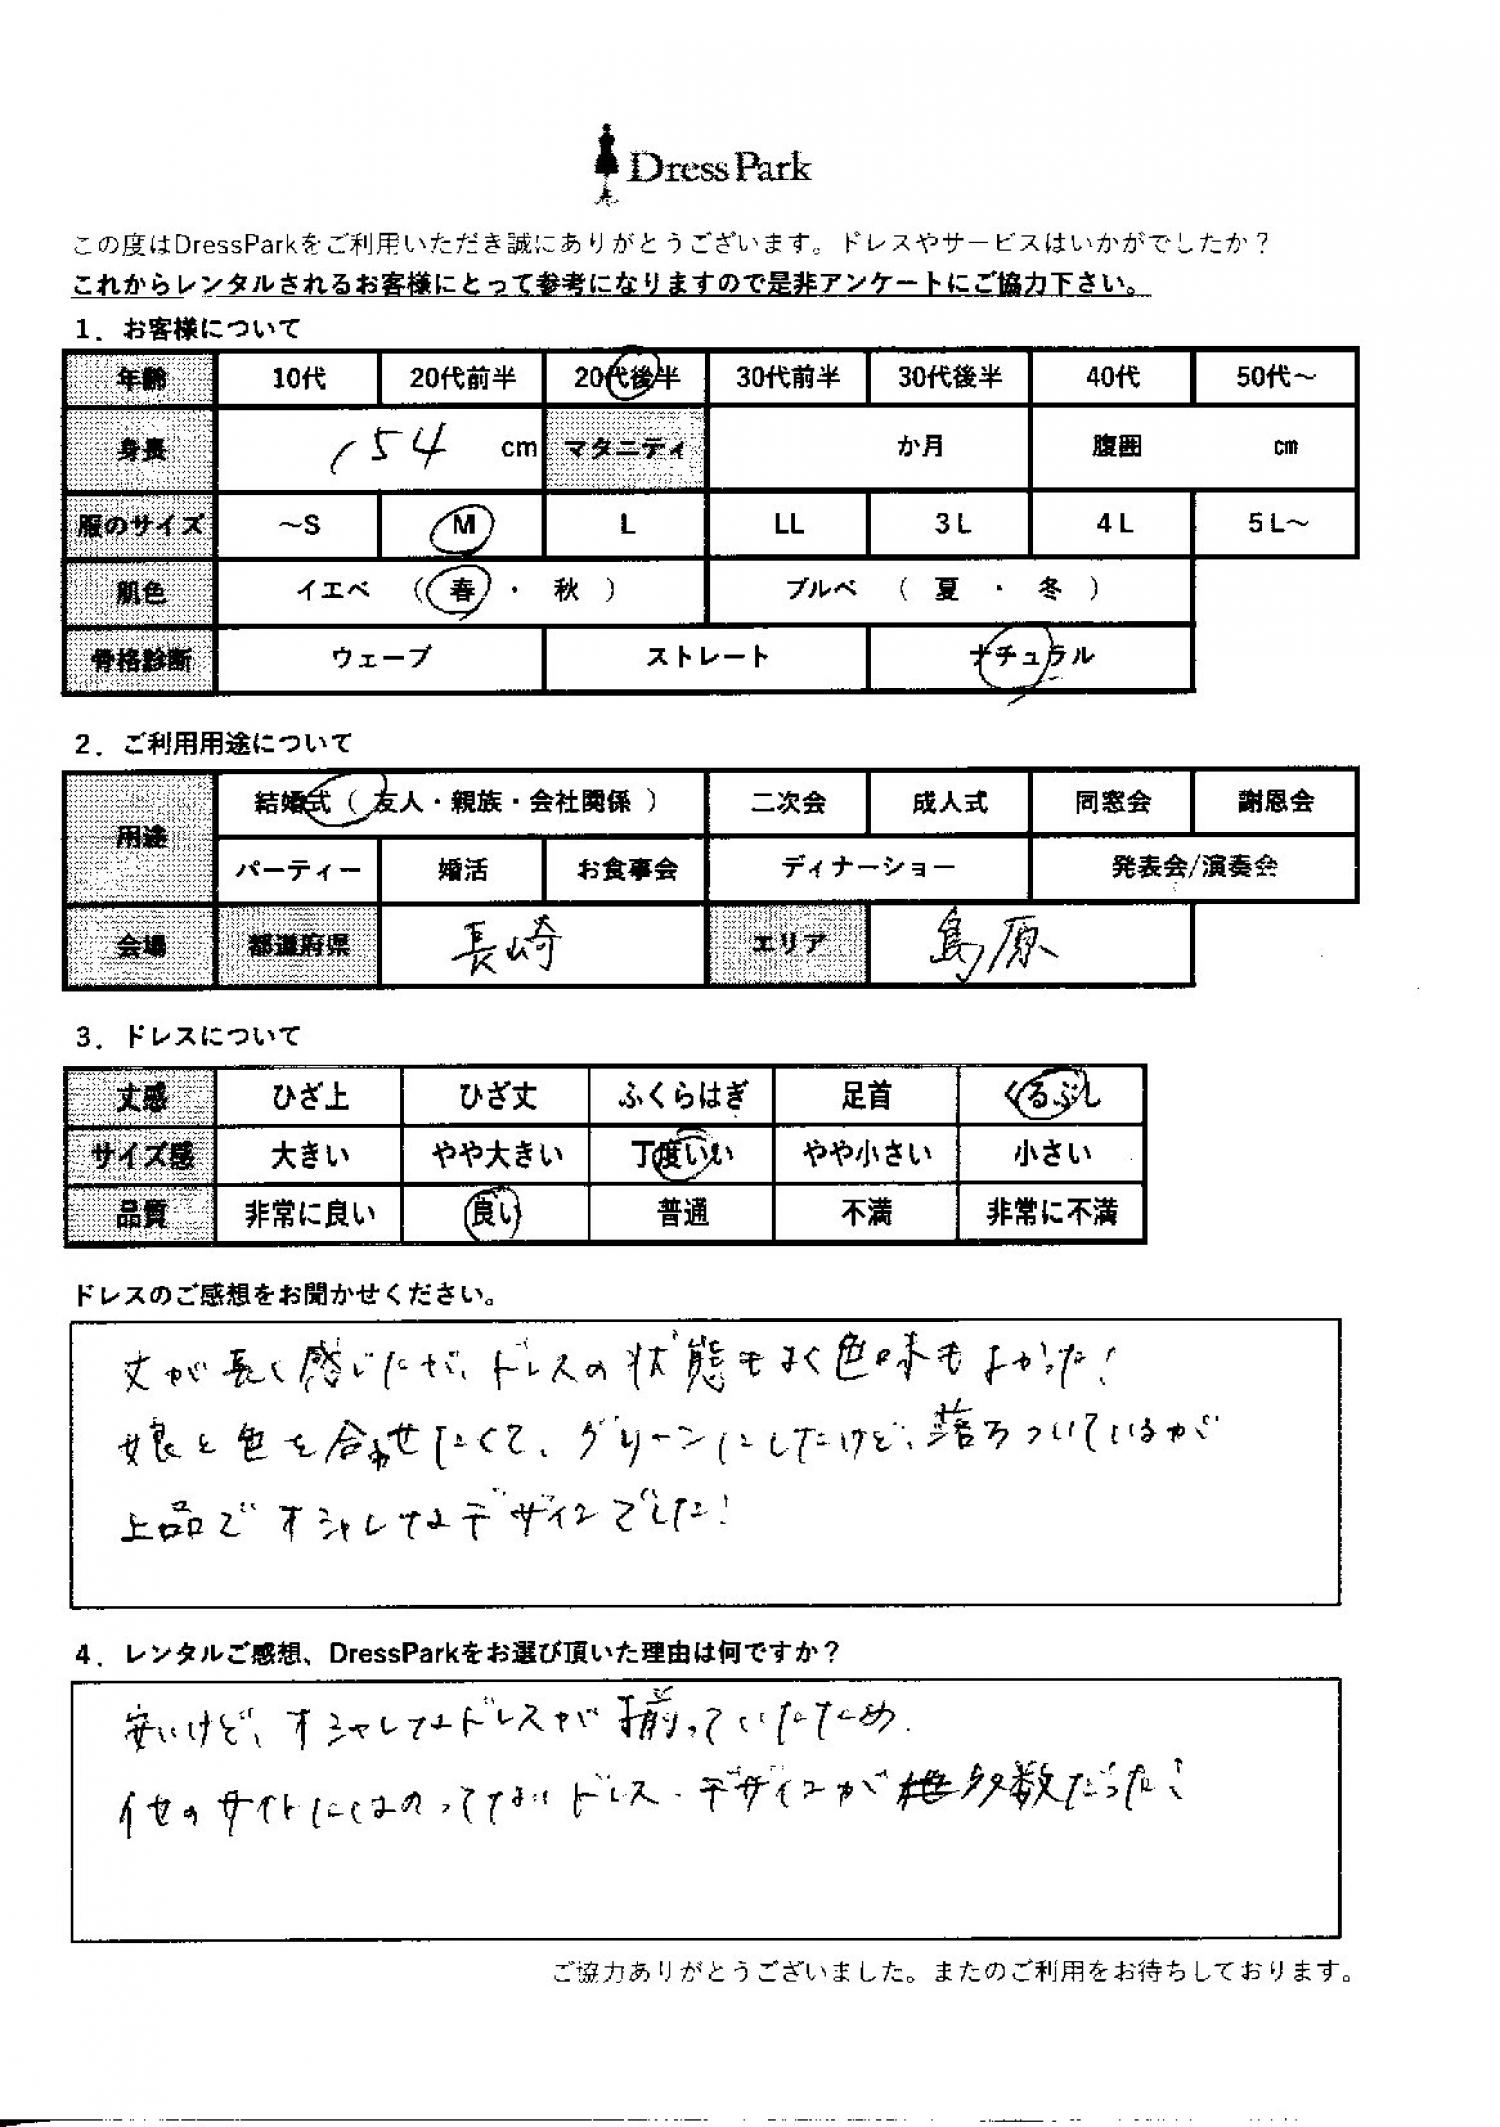 DressPark
この度はDressParkをご利用いただき誠にありがとうございます。ドレスやサービスはいかがでしたか？
これからレンタルされるお客様にとって参考になりますので是非アンケートにご協力下さい。
1．お客様について
年齢 10代 20代前半 20代後半 30代前半 30代後半 40代 50代～
身長 154 cm マタニティ か月 腹囲 cm
服のサイズ ～S M L LL 3L 4L 5L～
肌色 イエベ （ 春 ・ 秋 ） ブルベ （ 夏 ・ 冬 ）
骨格診断 ウェーブ ストレート ナチュラル
2．ご利用用途について
用途 結婚式（ 友人・親族・会社関係 ） 二次会 成人式 同窓会 謝恩会
パーティー 婚活 お食事会 ディナーショー 発表会/演奏会
会場 都道府県 長崎 エリア 島原
3．ドレスについて
丈感 ひざ上 ひざ丈 ふくらはぎ 足首 くるぶし
サイズ感 大きい やや大きい 丁度いい やや小さい 小さい
品質 非常に良い 良い 普通 不満 非常に不満
ドレスのご感想をお聞かせください。
丈が長く感じたが、ドレスの状態もよく色味もよかった！
娘と色を合わせたくて、グリーンにしたけど、落ちついているが
上品でオシャレなデザインでした！
4．レンタルご感想、DressParkをお選び頂いた理由は何ですか？
安いけど、オシャレなドレスが揃っていたため.
他のサイトにはのってないドレス・デザインが多数だった！
ご協力ありがとうございました。またのご利用をお待ちしております。